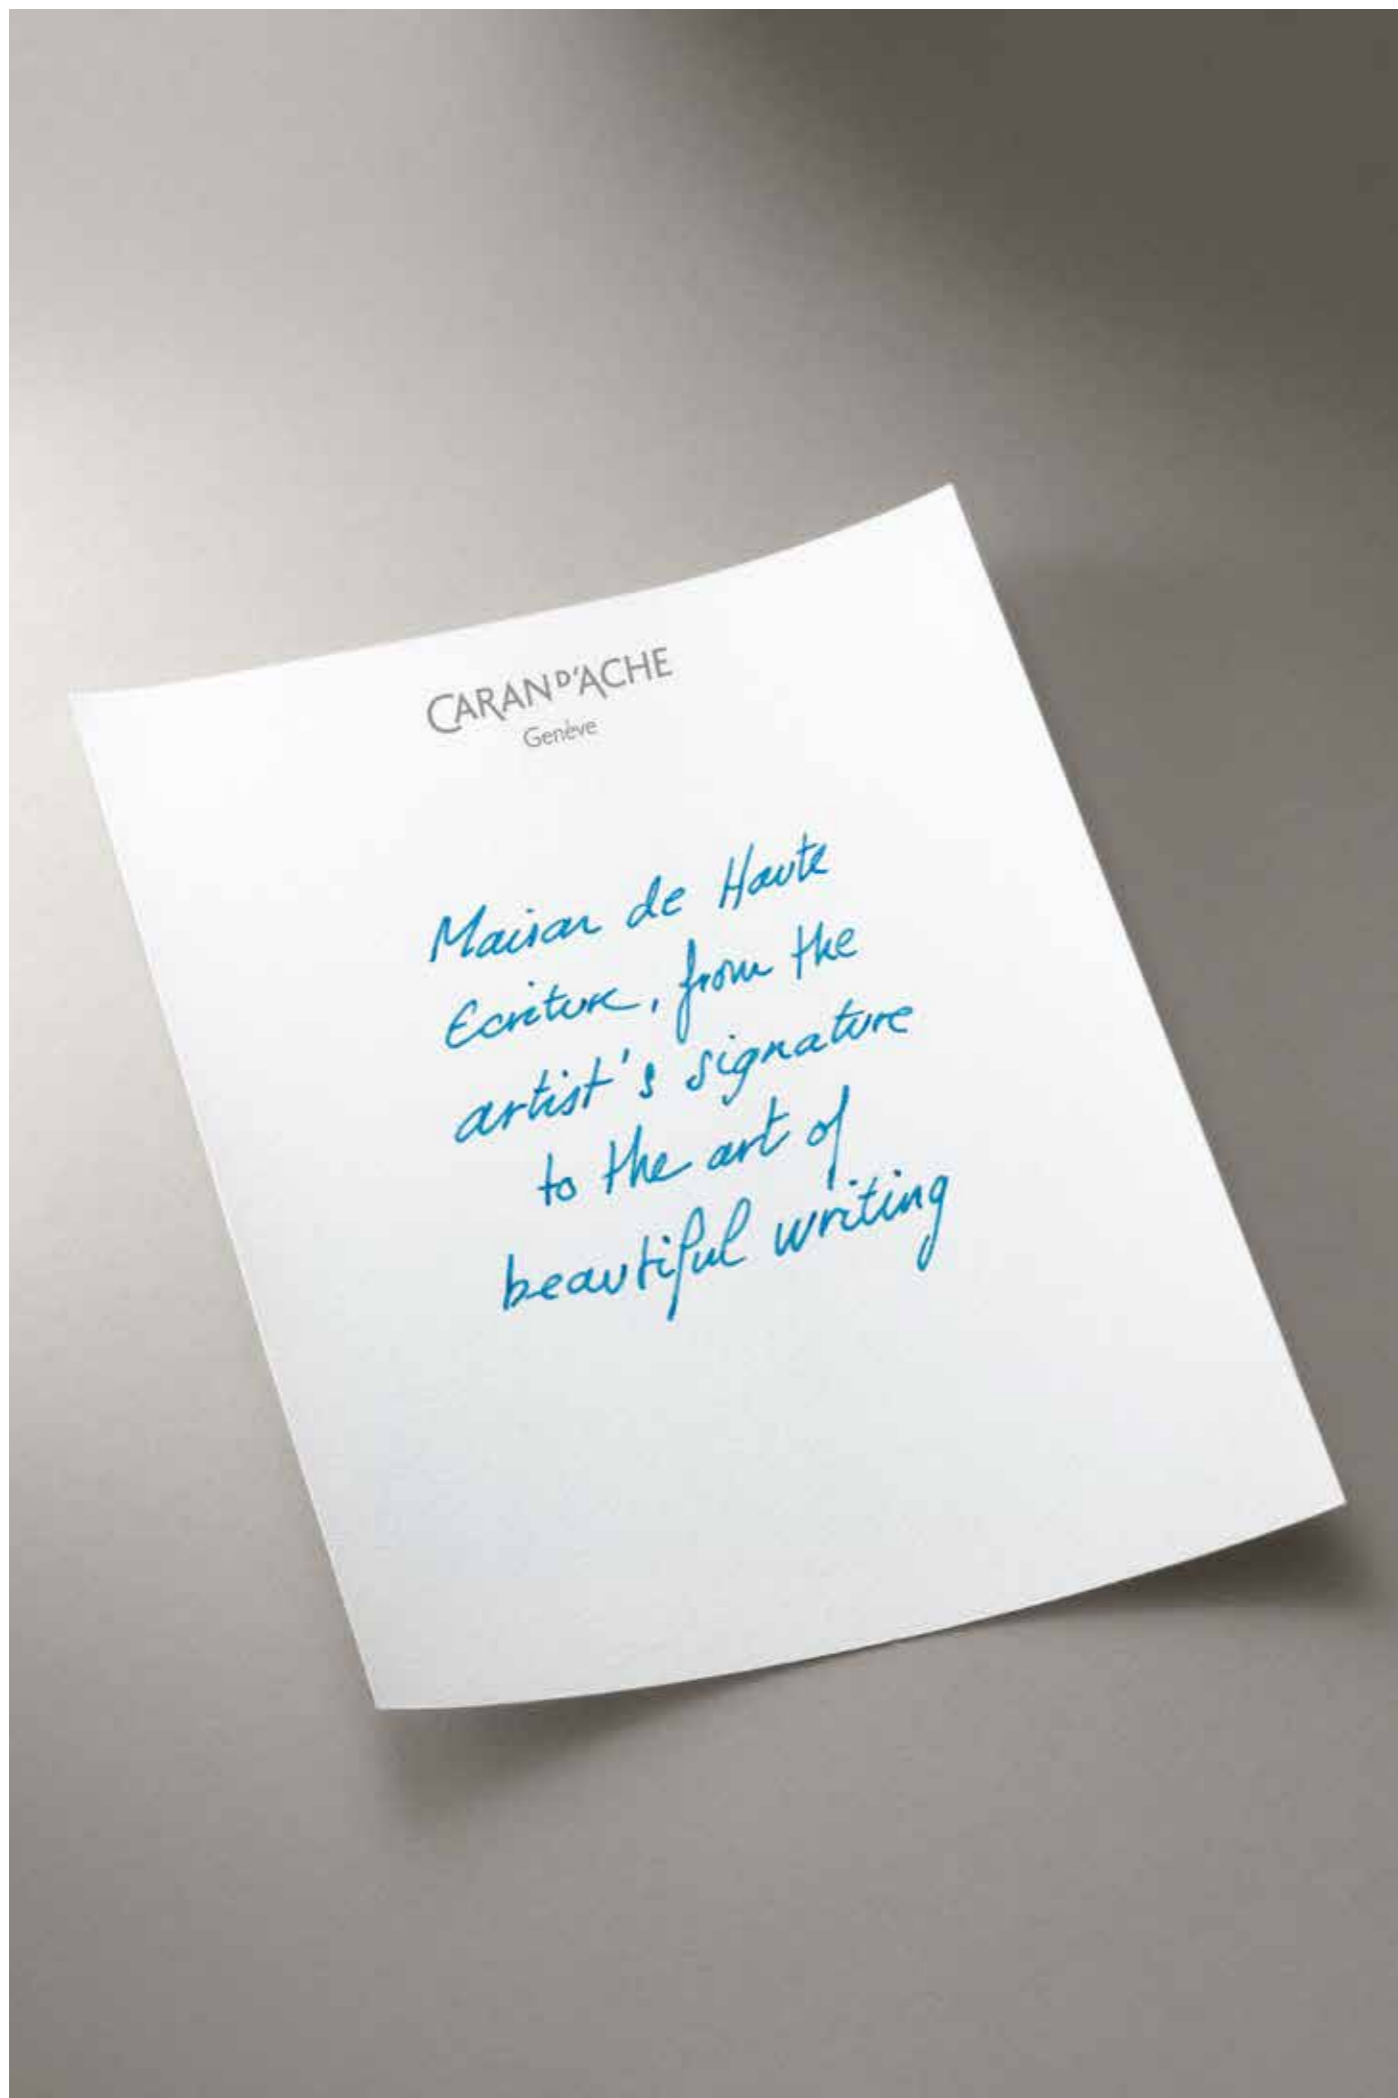 CARAN D'ACHE
Genève
Maison de Haute
Ecriture, from the
artist's signature
to the art of
beautiful writing